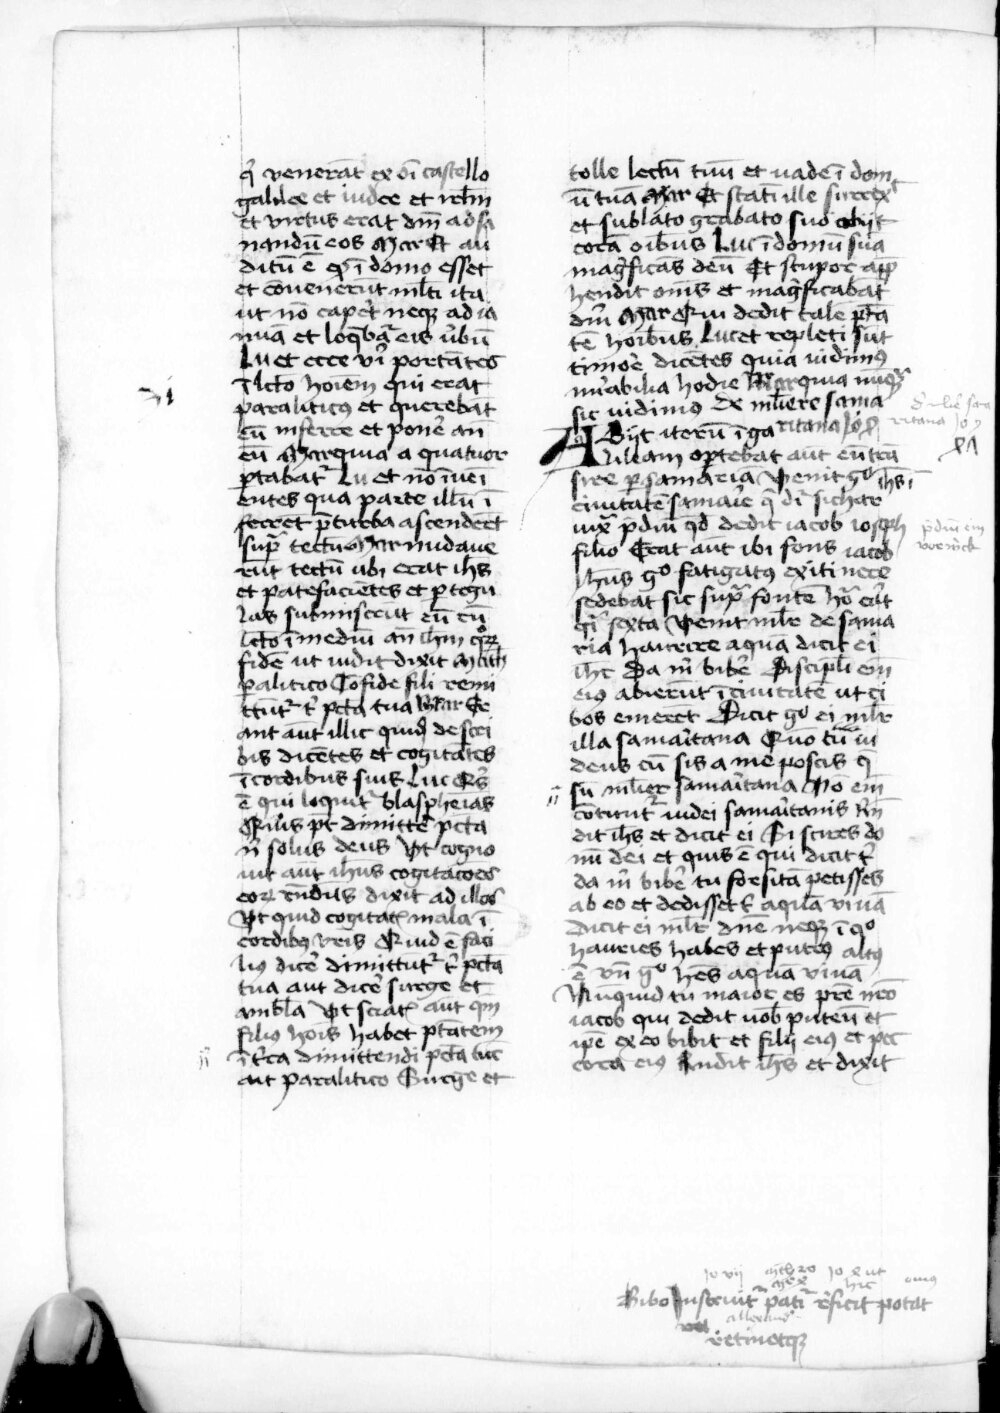 q̄ venerāt ex oī castello
galilee et iudee et irl̄m
et virtus erat dn̄i ad sa
nandū eos Mar Et au
ditū ē qḋ ī domo esset
et ꝯvenerūt ml̄ti ita
ut nō caperēt neqȝ ad ia
nuā et loq̄bat̄ eis v̓bū
Lu et ecce vi̓ portātes
ī lc̄to hoīem qui erat
paraliticꝯ et querebāt
eū inferre et pone̓ an̄
eū Mar quia a quatuor
ꝑtabat̓ Lu et nō īveī
entes qua parte illū ī
ferrēt p̄ turba ascenderūt
sup̓ tectū Mar nudave
rūt tectū ubi erat ih̄s
et patefaciētes et ꝑ tegu
las submiserūt eū cū
lc̄to ī mediū an̄ ihm̄ quoꝝ
fidē ut vidit dixit Math̄
ꝑalitico Cōfide fili remi
ttūt̓ t̓ pc̄ta tua Mar Er
ant aūt illic quidā de scri
bis dicētes et cogitātes
ī cordibus suis Luc Qis̓
ē qui loquit̓ blasphēias
Quis p̄t dimitte̓ pc̄ta
n̄ solus deus Ut cogno
uit aūt ih̄us cogitacōes
eoꝝ r̄ndēs dixit ad illos
Ut quid cogitat̓ mala ī
cordibꝯ vr̄is Quid ē faci
liꝯ dice̓ dimittūt̓ t̓ pc̄ta
tua aut dice̓ surge et
ambl̄a Ut sciat̓ aūt qm̄
filius hoīs habet ptātem
ī t̓ra dimittendi pc̄ta tūc
ait paralitico Surge et
tolle lectū tuū et vade ī dom
ū tuā Mar Et statī ille surrex̓t
et sublāto grabato suo abijt
corā oībus Luc ī domū suā
magn̓ficās deū Et stupor app̄
hendit omēs et magn̓ficabāt
dm̄ Mar Qui dedit talē ptā
tē hoībus Luc et repleti sūt
timore̓ dicētes quia vidimꝯ
mirabilia hodie Mar quia nūqȝ
sic vidimus De mul̓iere sama
ritana Jo
ABijt iterū ī ga
lileam oꝑtebat aūt eū trā
sire ꝑ samariā Venit gᵒ ih̄s ī
civitatē samarie̓ q̄ dr̄ sichar
iuxᵃ p̄diū qd̄ dedit iacob ioseph
filio Erat aūt ibi fons iacob
Ih̄us gᵒ fatigatꝯ ex itinere
sedebat sic supᵃ fontē hōra erāt
q̄si sexta Venit ml̄r de sama
ria haurire aquā dicit ei
ihc̄ Da m̓ bibe̓ Discipul̄i em̄
eiꝯ abierūt ī civitatē ut ci
bos emerēt Dicit gᵒ ei ml̄r
illa samaritana Quō tu iu
deus cū sis a me poscis q̄
sū ml̄ier samaritana Nō em̄
ꝯtūtur̓ iudei samaritanis Rn̄
dit ih̄s et dicit ei Si scires do
nū dei et quis ē qui dicit t̓
da m̓ bibe̓ tu forsitā petisses
ab eo et dedisset t̓ aquā vivā
Dicit ei ml̄r dn̄e neqȝ ī qᵒ
hauries habes et puteꝯ altꝯ
ē vn̄ gᵒ hēs aquā vivā
Nūquid tu maior es pr̄e nr̄o
iacob qui dedit nob̄ puteū et
ip̄e ex eo bibit et filij eiꝯ et pec
cora eiꝯ Rn̄dit ih̄s et dixit
Jo vij Jo x ut
hic
Bibo pati̓ reficit potat
retinetqȝ